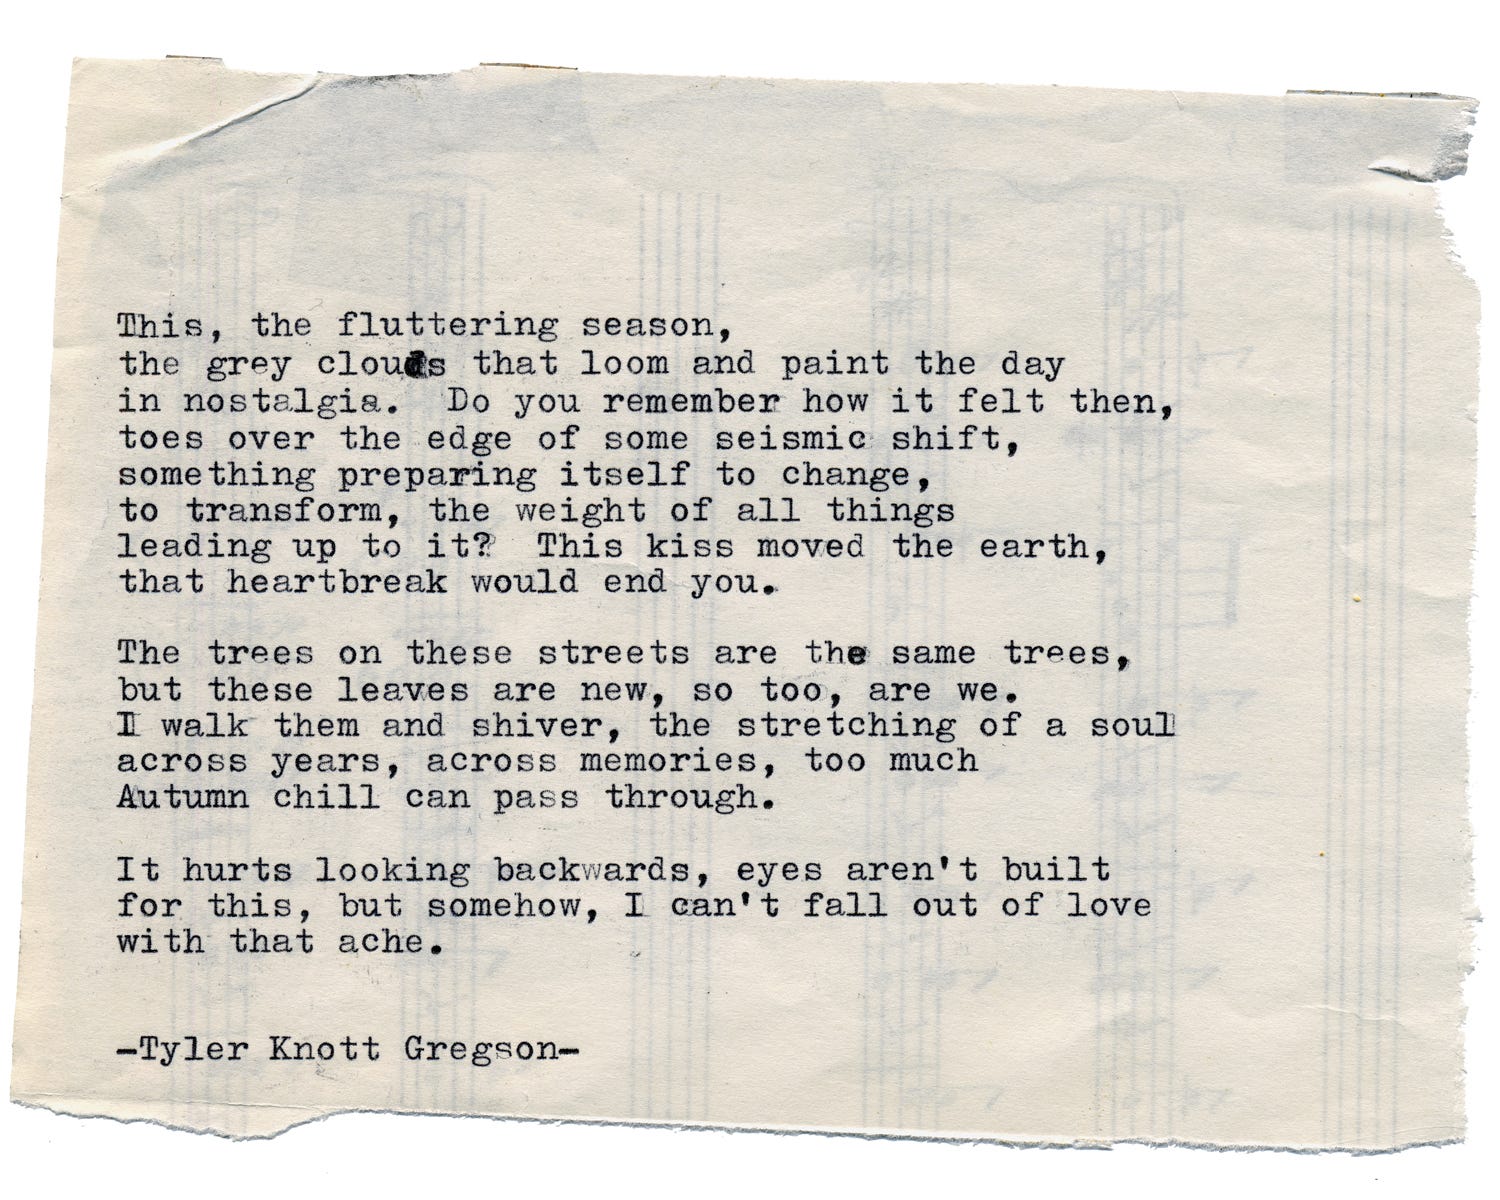 This, the fluttering season,
the grey clouds that loom and paint the day
in nostalgia.  Do you remember how it felt then,
toes over the edge of some seismic shift,
something preparing itself to change,
to transform, the weight of all things
leading up to it?  This kiss moved the earth,
that heartbreak would end you.

The trees on these streets are the same trees,
but these leaves are new, so too, are we.
I walk them and shiver, the stretching of a soul
across years, across memories, too much
Autumn chill can pass through.

It hurts looking backwards, eyes aren't built
for this, but somehow, I can't fall out of love
with that ache.

-Tyler Knott Gregson-